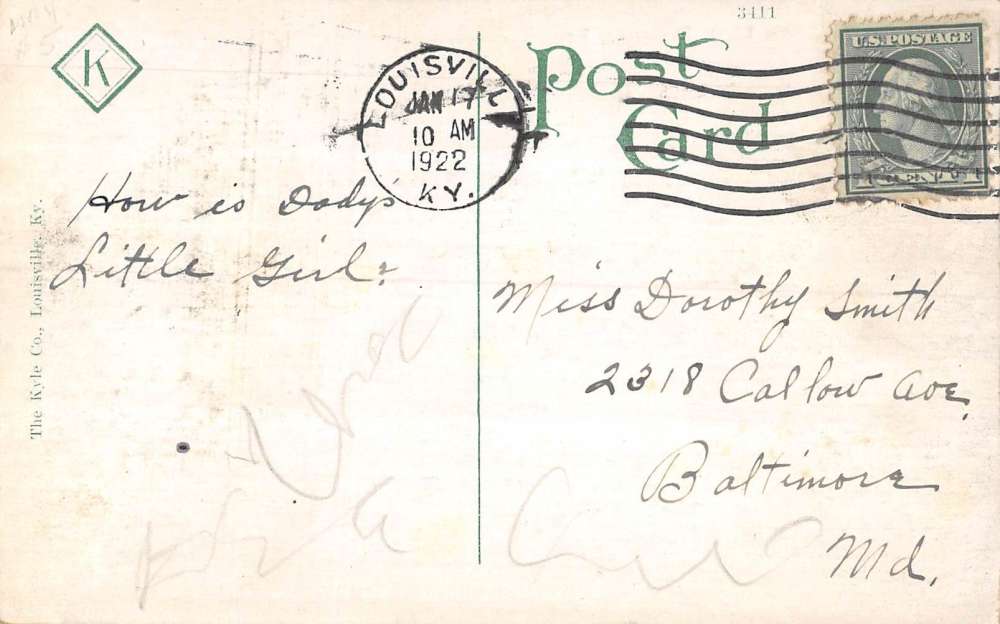 3411
K
Post
Card
U.S. POSTAGE
LOUISVILLE
JAN 17
10 AM
1922
KY.
How is Dady's
Little Girl?
Miss Dorothy Smith
2318 Callow Ave.
Baltimore
Md.
The Kyle Co., Louisville, Ky.